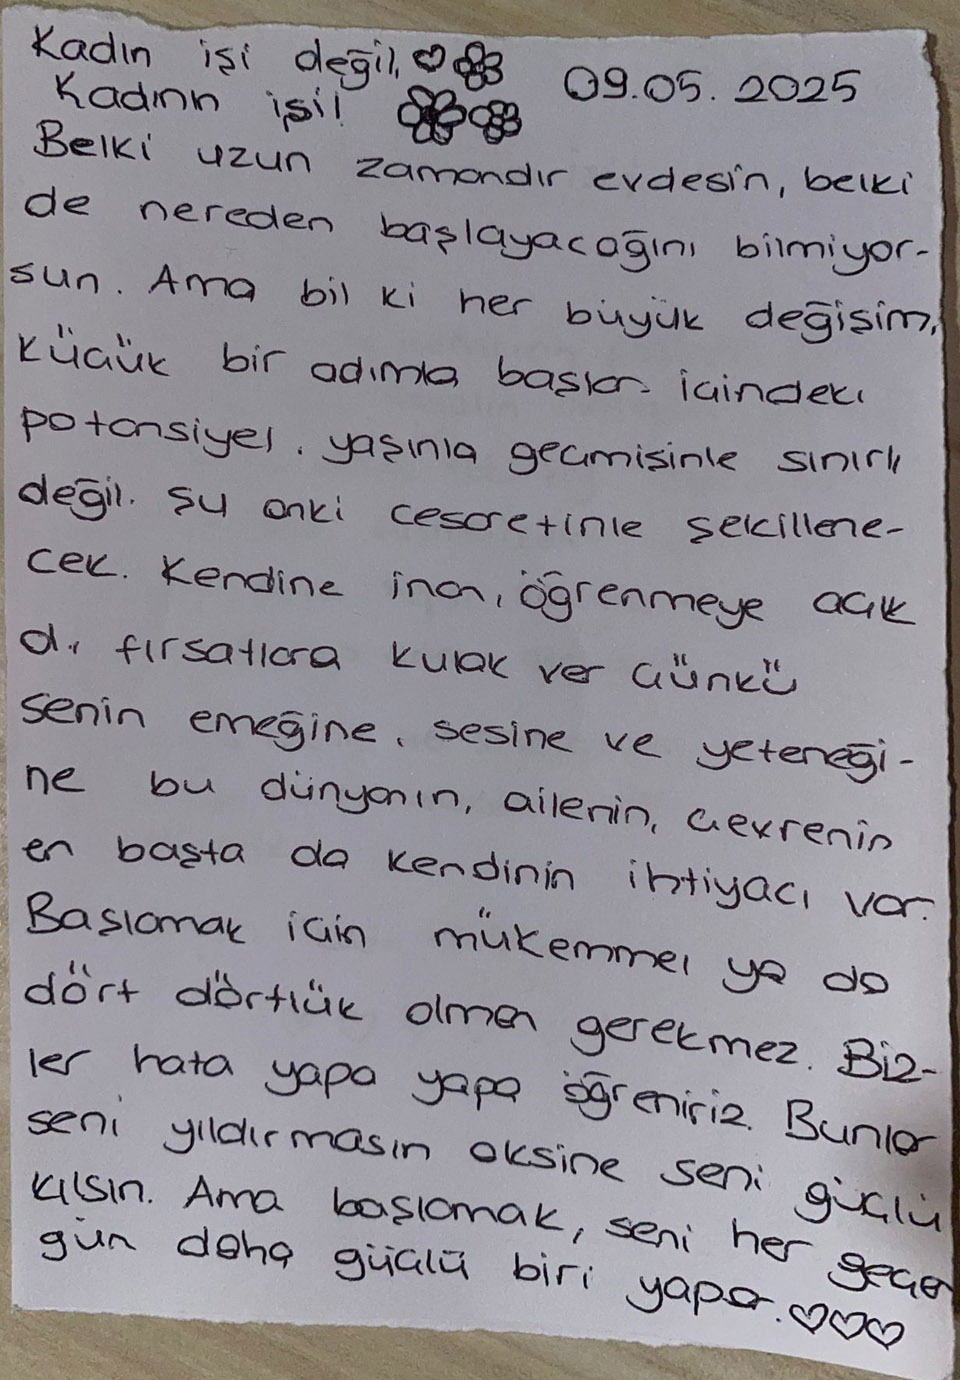 Kadın işi değil,
09.05.2025
Kadının işi!
Belki uzun zamandır evdesin, belki
de nereden başlayacağını bilmiyor-
sun. Ama bil ki her büyük değişim,
küçük bir adımla başlar. içindeki
potansiyel, yaşınla geçmişinle sınırlı
değil. Şu anki cesaretinle şekillene-
cek. Kendine inan, öğrenmeye açık
ol, fırsatlara kulak ver Çünkü
senin emeğine, sesine ve yeteneği-
ne bu dünyanın, ailenin, çevrenin
en başta da kendinin ihtiyacı var.
Başlamak için mükemmel ya da
dört dörtlük olman gerekmez. Biz-
ler hata yapa yapa öğreniriz. Bunlar
seni yıldırmasın aksine seni güçlü
kılsın. Ama başlamak, seni her geçen
gün daha güçlü biri yapar.